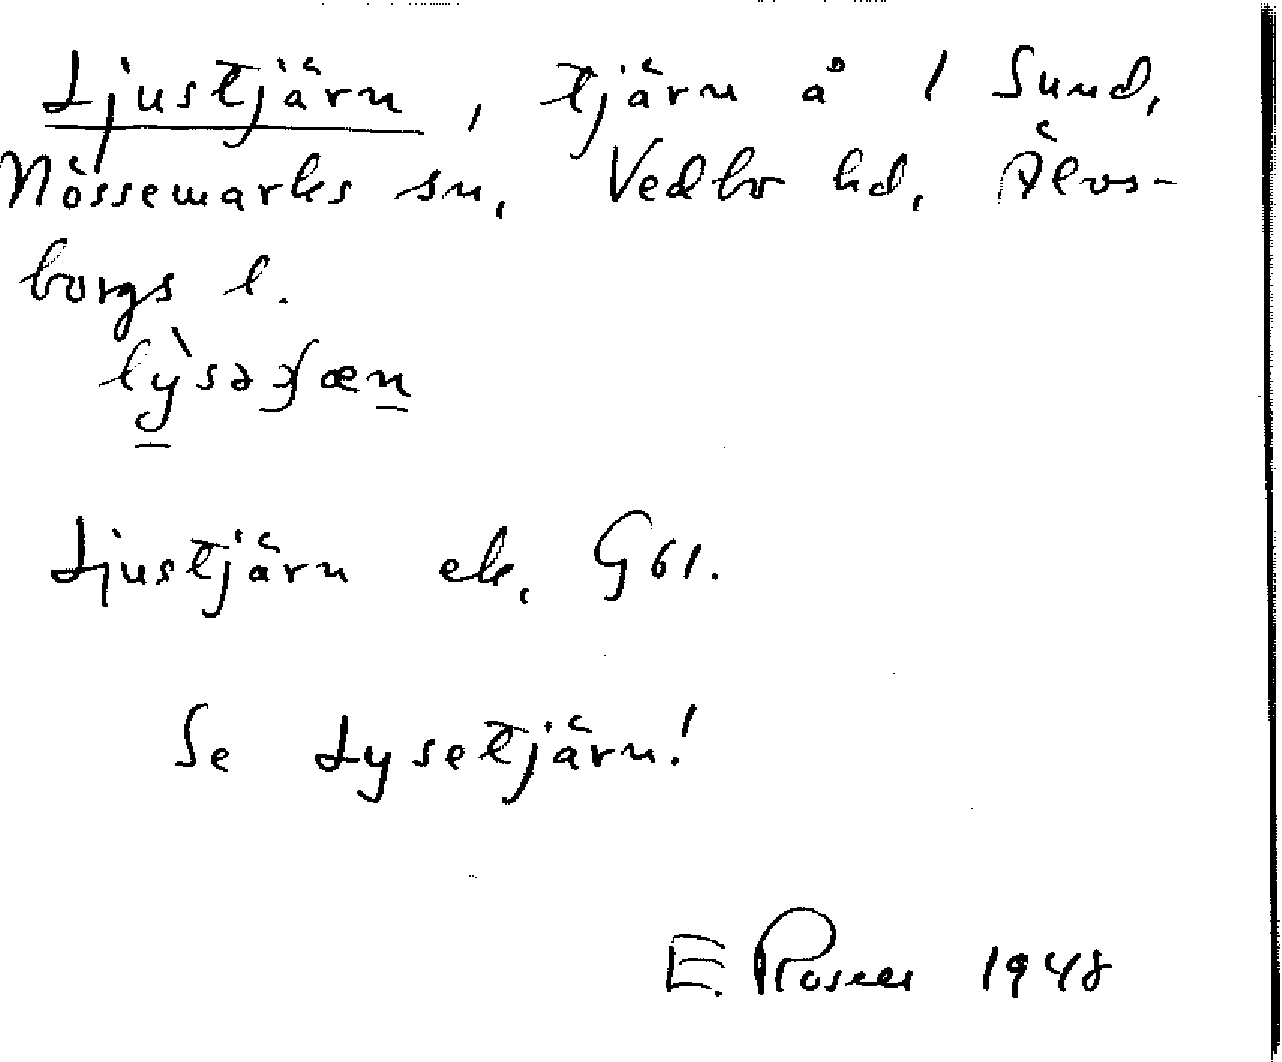 Ljustjärn, tjärn å 1 Sund,
Nössemarks sn, Vedbo hd, Älvs-
borgs l.
Ljustjärn ek. G61.
Se Lysetjärn!
E. Rosell 1948